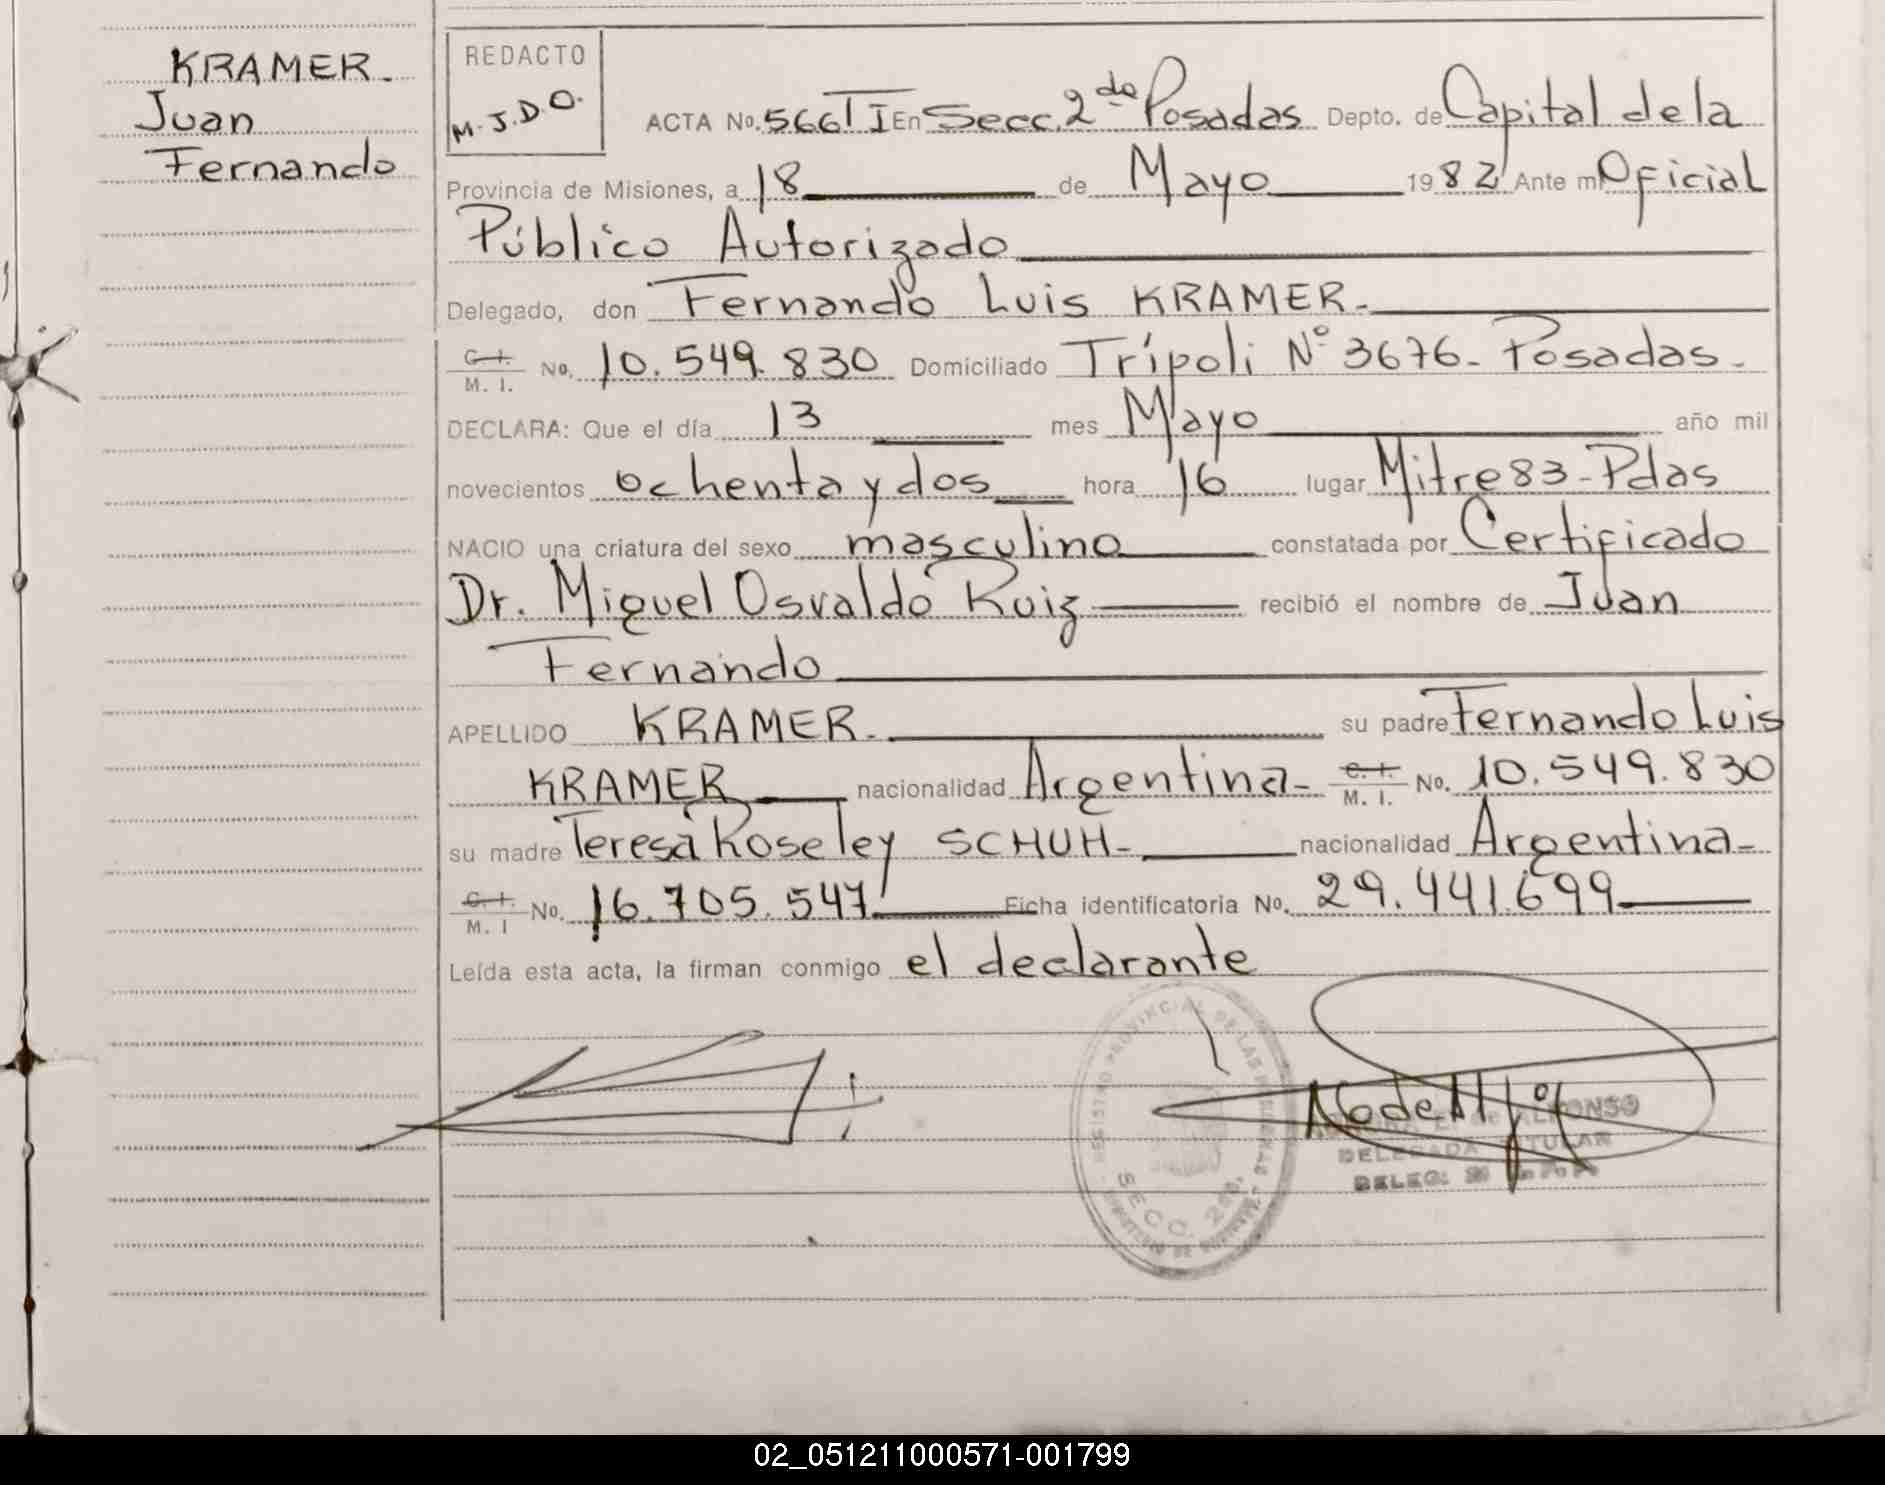 KRAMER.
Juan
Fernando
REDACTO
M.J.D.O.
ACTA No. 566 T I En Secc. 2da Posadas Depto. de Capital de la
Provincia de Misiones, a 18 de Mayo 1982 Ante mi Oficial
Público Autorizado
Delegado, don Fernando Luis KRAMER.
C. I.
M. I. No. 10.549.830 Domiciliado Trípoli N° 3676 - Posadas.
DECLARA: Que el día 13 mes Mayo año mil
novecientos ochenta y dos hora 16 lugar Mitre 83 - Pdas
NACIO una criatura del sexo masculino constatada por Certificado
Dr. Miguel Osvaldo Ruiz recibió el nombre de Juan
Fernando
APELLIDO KRAMER. su padre Fernando Luis
KRAMER nacionalidad Argentina - C. I. M. I. No. 10.549.830
su madre Teresa Roseley SCHUH - nacionalidad Argentina -
C. I.
M. I No. 16.705.547 Ficha identificatoria No. 29.441.699
Leída esta acta, la firman conmigo el declarante
REGISTRO PROVINCIAL DE LAS PERSONAS
SECC. 2da.
DE ALFONSO
DELEGADA TITULAR
DELEG.
02_051211000571-001799